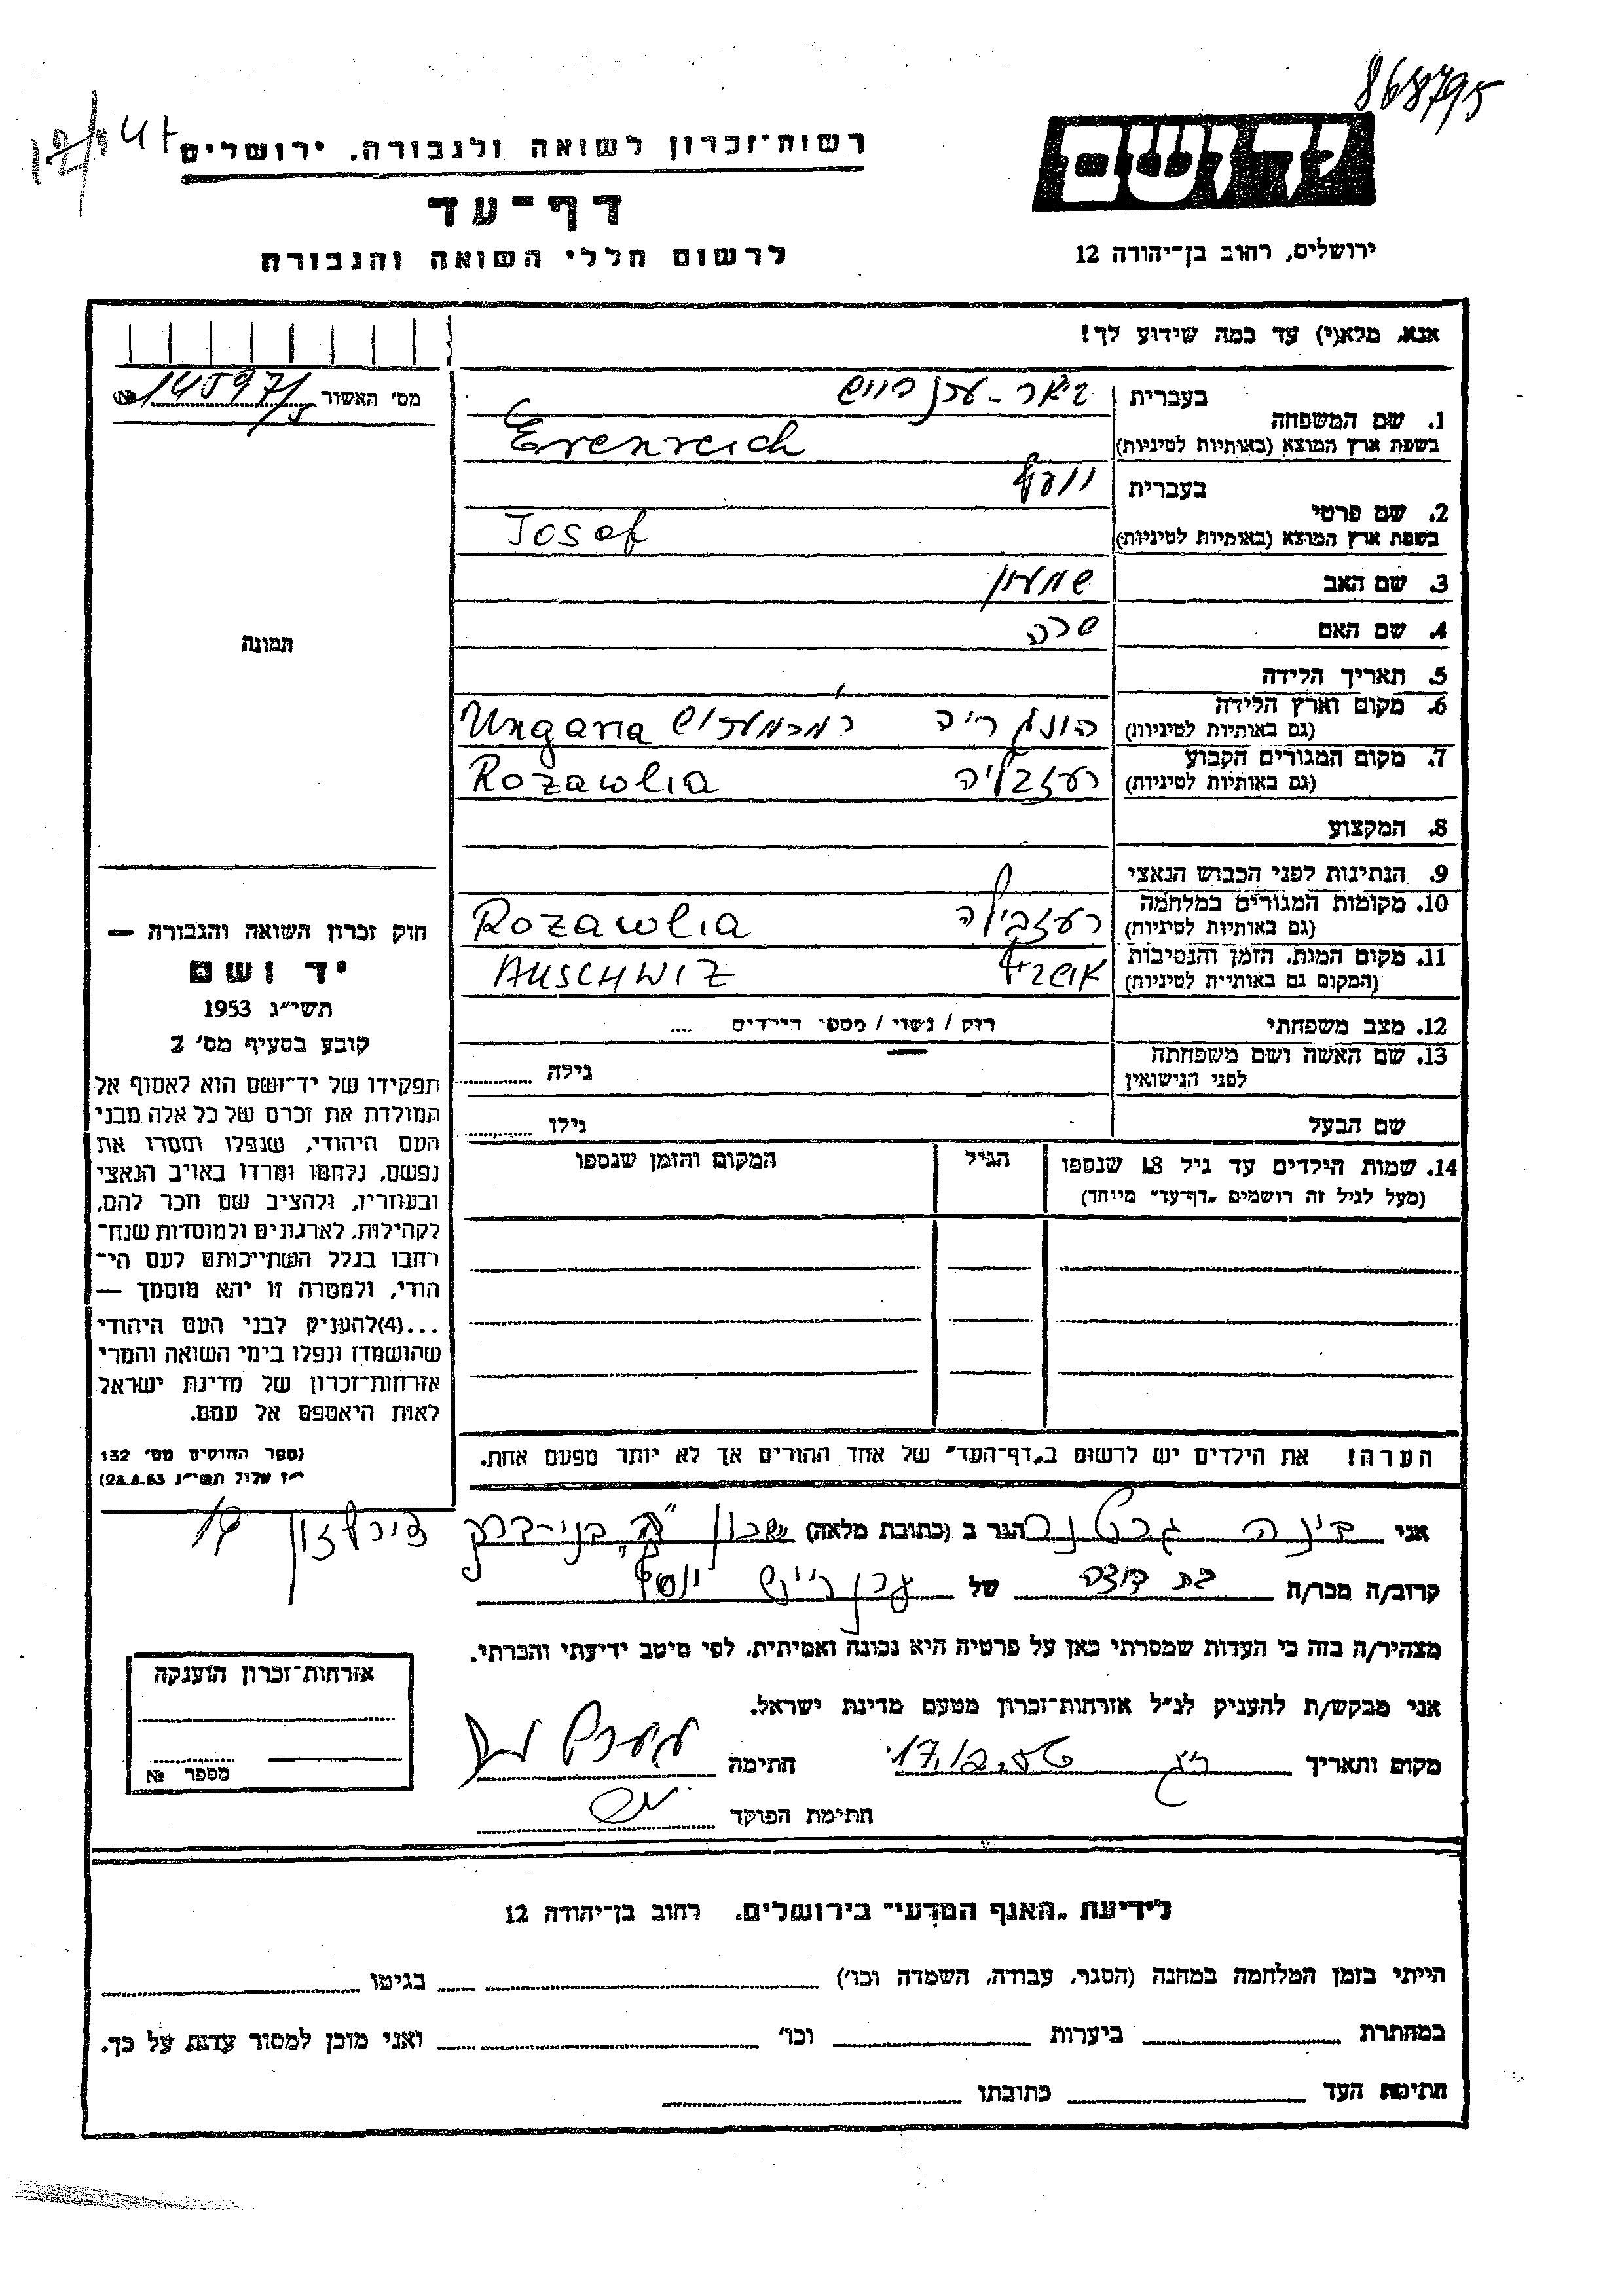 868795
יד ושם
רשות־זכרון לשואה ולגבורה, ירושלים
דף־עד
לרשום חללי השואה והגבורה
ירושלים, רחוב בן־יהודה 12
אנא, מלא(י) עד כמה שידוע לך!
מס' האשור № 145971/5
1. שם המשפחה
בעברית
בשפת ארץ המוצא (באותיות לטיניות) Erenreich
2. שם פרטי
בעברית יוסף
בשפת ארץ המוצא (באותיות לטיניות) Josef
3. שם האב שמעון
4. שם האם שרה
תמונה
5. תאריך הלידה
6. מקום וארץ הלידה (גם באותיות לטיניות) הונגריה מרמורוש Ungaria
7. מקום המגורים הקבוע (גם באותיות לטיניות) רוזבליה Rozawlia
8. המקצוע
9. הנתינות לפני הכבוש הנאצי
10. מקומות המגורים במלחמה (גם באותיות לטיניות) רוזבליה Rozawlia
11. מקום המות, הזמן והנסיבות (המקום גם באותיות לטיניות) אושביץ AUSCHWIZ
12. מצב משפחתי רווק / נשוי / מספר הילדים .....
13. שם האשה ושם משפחתה לפני הנישואין גילה
שם הבעל גילו
14. שמות הילדים עד גיל 18 שנספו
(מעל לגיל זה רושמים „דף־עד" מיוחד)
הגיל
המקום והזמן שנספו
חוק זכרון השואה והגבורה —
יד ושם
תשי"ג 1953
קובע בסעיף מס' 2
תפקידו של יד־ושם הוא לאסוף אל
המולדת את זכרם של כל אלה מבני
העם היהודי, שנפלו ומסרו את
נפשם, נלחמו ומרדו באויב הנאצי
ובעוזריו, ולהציב שם וזכר להם,
לקהילות, לארגונים ולמוסדות שנח־
רבו בגלל השתייכותם לעם הי־
הודי, ולמטרה זו יהא מוסמך —
...(4) להעניק לבני העם היהודי
שהושמדו ונפלו בימי השואה והמרי
אזרחות־זכרון של מדינת ישראל
לאות היאספם אל עמם.
(ספר החוקים מס' 132
י"ז אלול תשי"ג 28.8.53)
הערה! את הילדים יש לרשום ב„דף־העד" של אחד ההורים אך לא יותר מפעם אחת.
אני דינה גרטנר הגר ב (כתובת מלאה) שכון ה' בני-ברק
קרוב/ה מכר/ה בת דודה של יוסף
מצהיר/ה בזה כי העדות שמסרתי כאן על פרטיה היא נכונה ואמיתית, לפי מיטב ידיעתי והכרתי.
אני מבקש/ת להעניק לנ"ל אזרחות־זכרון מטעם מדינת ישראל.
מקום ותאריך חתימה
חתימת הפוקד
אזרחות־זכרון הוענקה
מספר №
לידיעת „האגף המדעי" בירושלים, רחוב בן־יהודה 12
הייתי בזמן המלחמה במחנה (הסגר, עבודה, השמדה וכו') בגיטו
במחתרת ביערות וכו' ואני מוכן למסור עדות על כך.
חתימת העד כתובתו